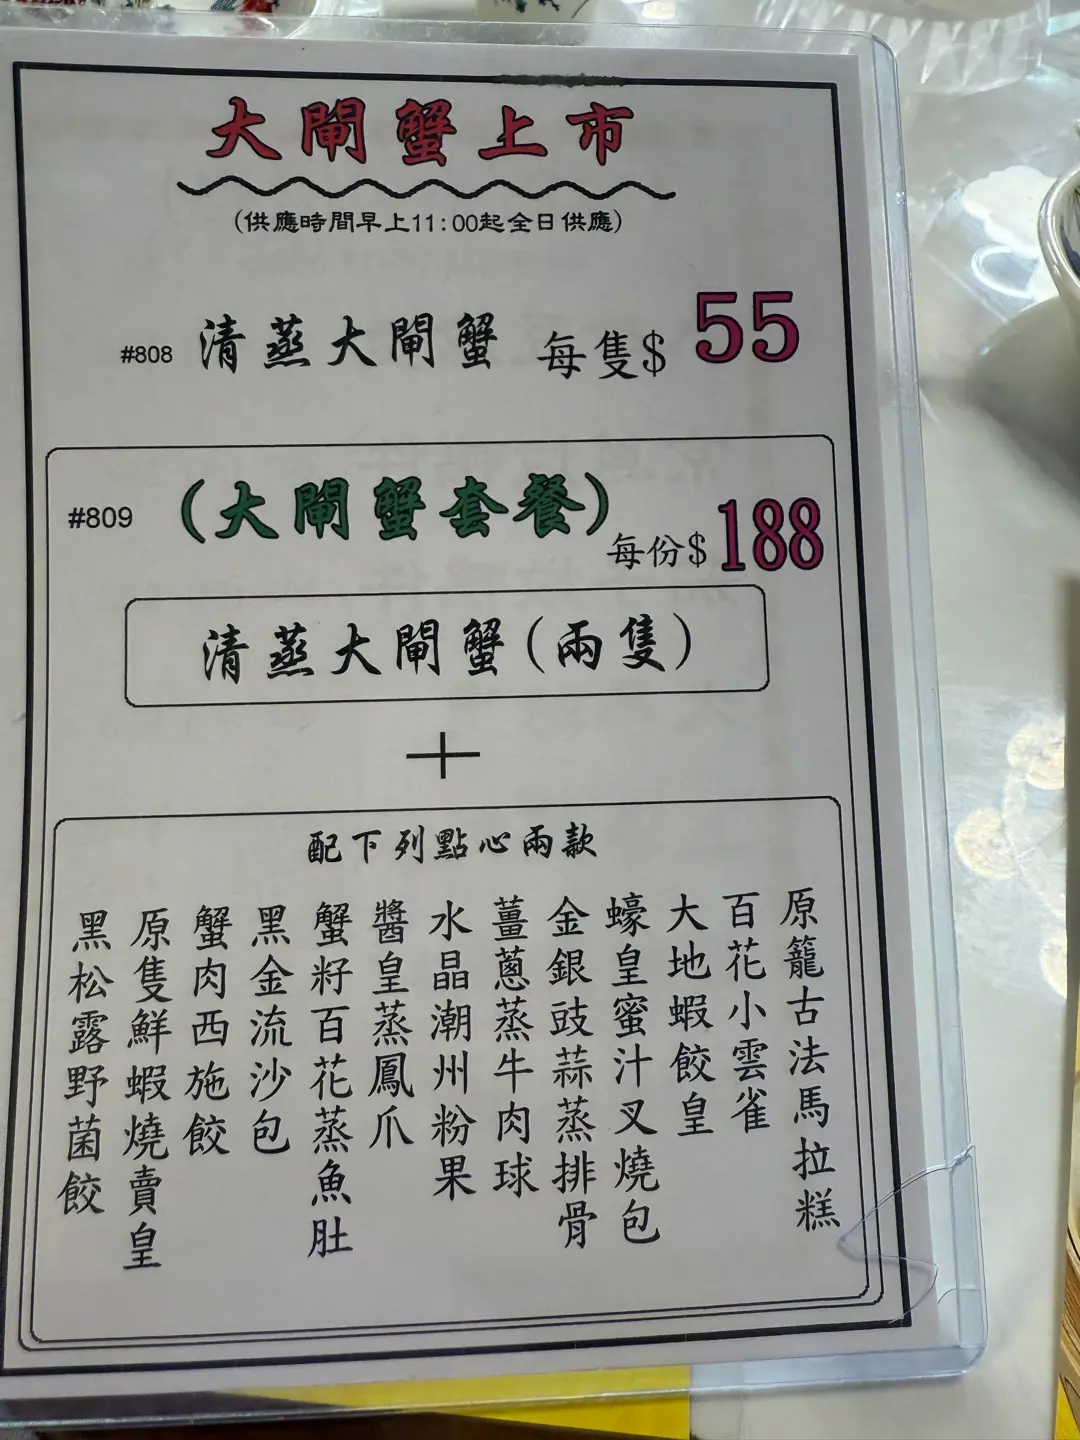 大閘蟹上市
(供應時間早上11:00起全日供應)
#808 清蒸大閘蟹 每隻$ 55
#809 (大閘蟹套餐) 每份$ 188
清蒸大閘蟹(兩隻)
+
配下列點心兩款
原籠古法馬拉糕
百花小雲雀
大地蝦餃皇
蠔皇蜜汁叉燒包
金銀豉蒜蒸排骨
薑蔥蒸牛肉球
水晶潮州粉果
醬皇蒸鳳爪
蟹籽百花蒸魚肚
黑金流沙包
蟹肉西施餃
原隻鮮蝦燒賣皇
黑松露野菌餃